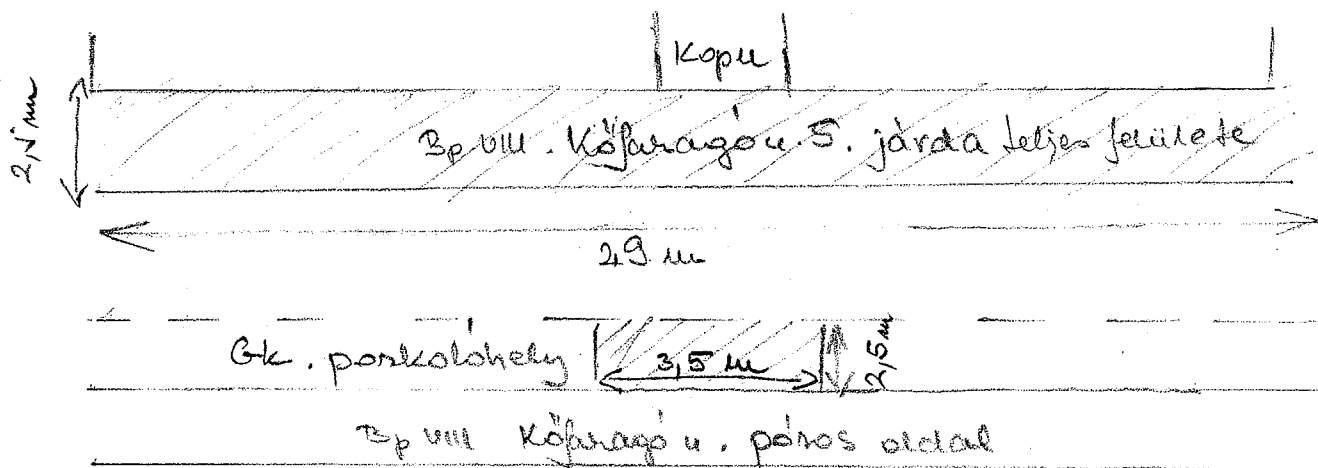 Kapu
2,5 m
Bp VIII. Kőfaragó u. 5. járda teljes felülete
29 m
Gk. parkolóhely 3,5 m 2,5 m
Bp VIII Kőfaragó u. páros oldal